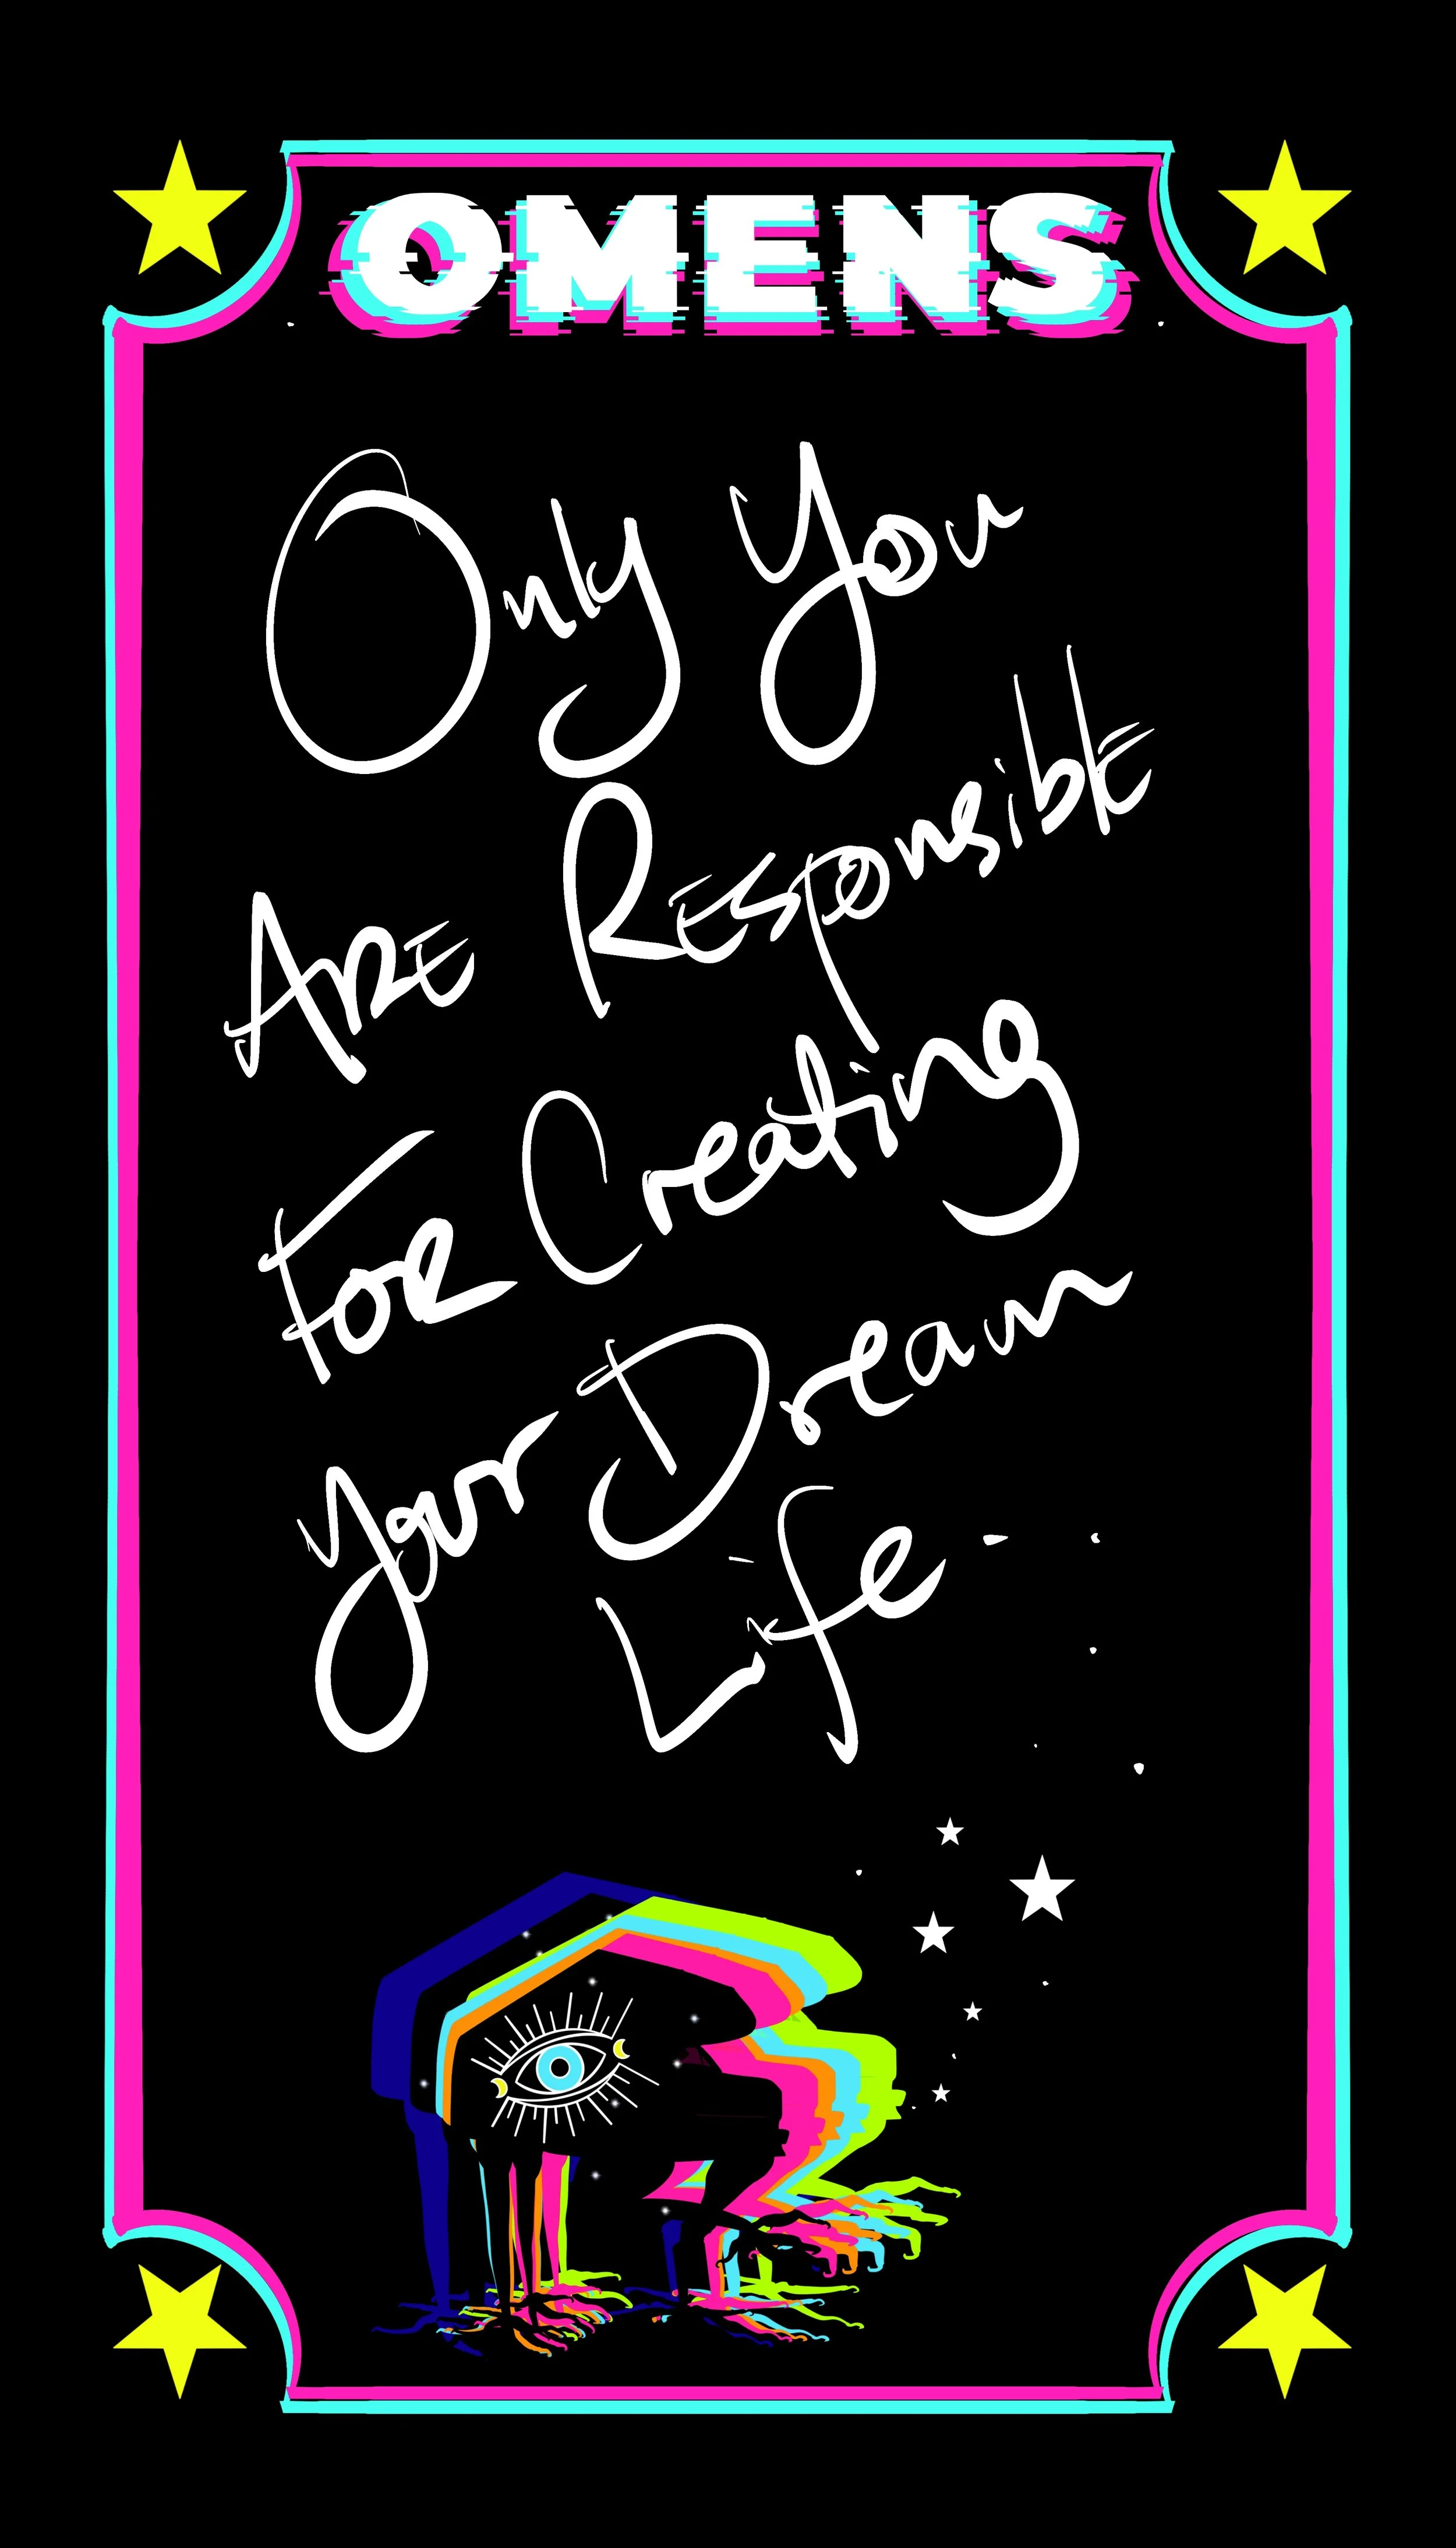 OMENS
Only You
ARE RESponsiblE
FOR Creating
Your Dream
Life